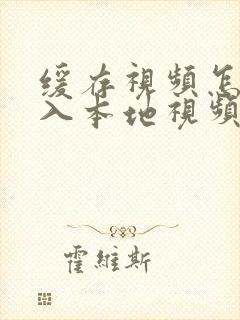 缓存視頻怎
入本地視頻
霍維斯